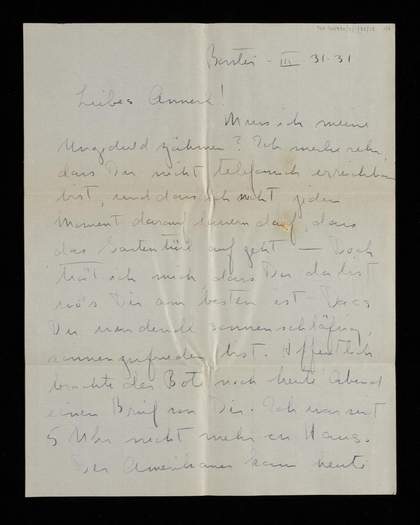 III 31-31
Liebes Annerl!
Muss ich meine
Ungeduld zähmen? Ich merke sehr,
dass Du nicht telefonisch erreichbar
bist, und dass ich nicht jeden
Moment darauf lauern darf, dass
das Gartentürl auf geht — Doch
tröstet mich dass Du da bist
wo's Dir am besten ist. Dass
Du
sonnenzufrieden bist. Hoffentlich
brachte der Bote noch heute Abend
einen Brief von Dir. Ich war seit
5 Uhr nicht mehr zu Haus.
Der Amerikaner kam heute